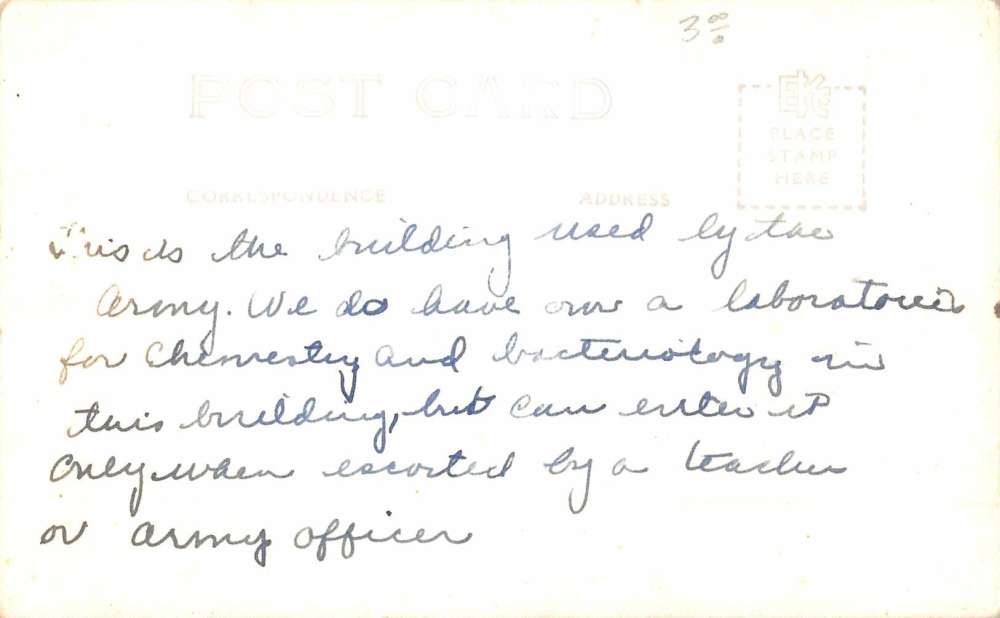 3 00/0
POST CARD
EKC
PLACE
STAMP
HERE
CORRESPONDENCE ADDRESS
This is the building used by the
Army. We do have our laboratories
for Chemestry and bacteriology in
this building, but can enter it
only when escorted by a teacher
or army officer